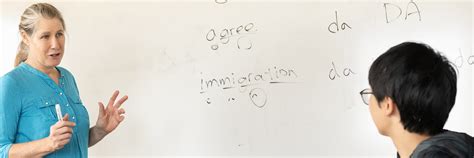 agree da DA
immigration da da